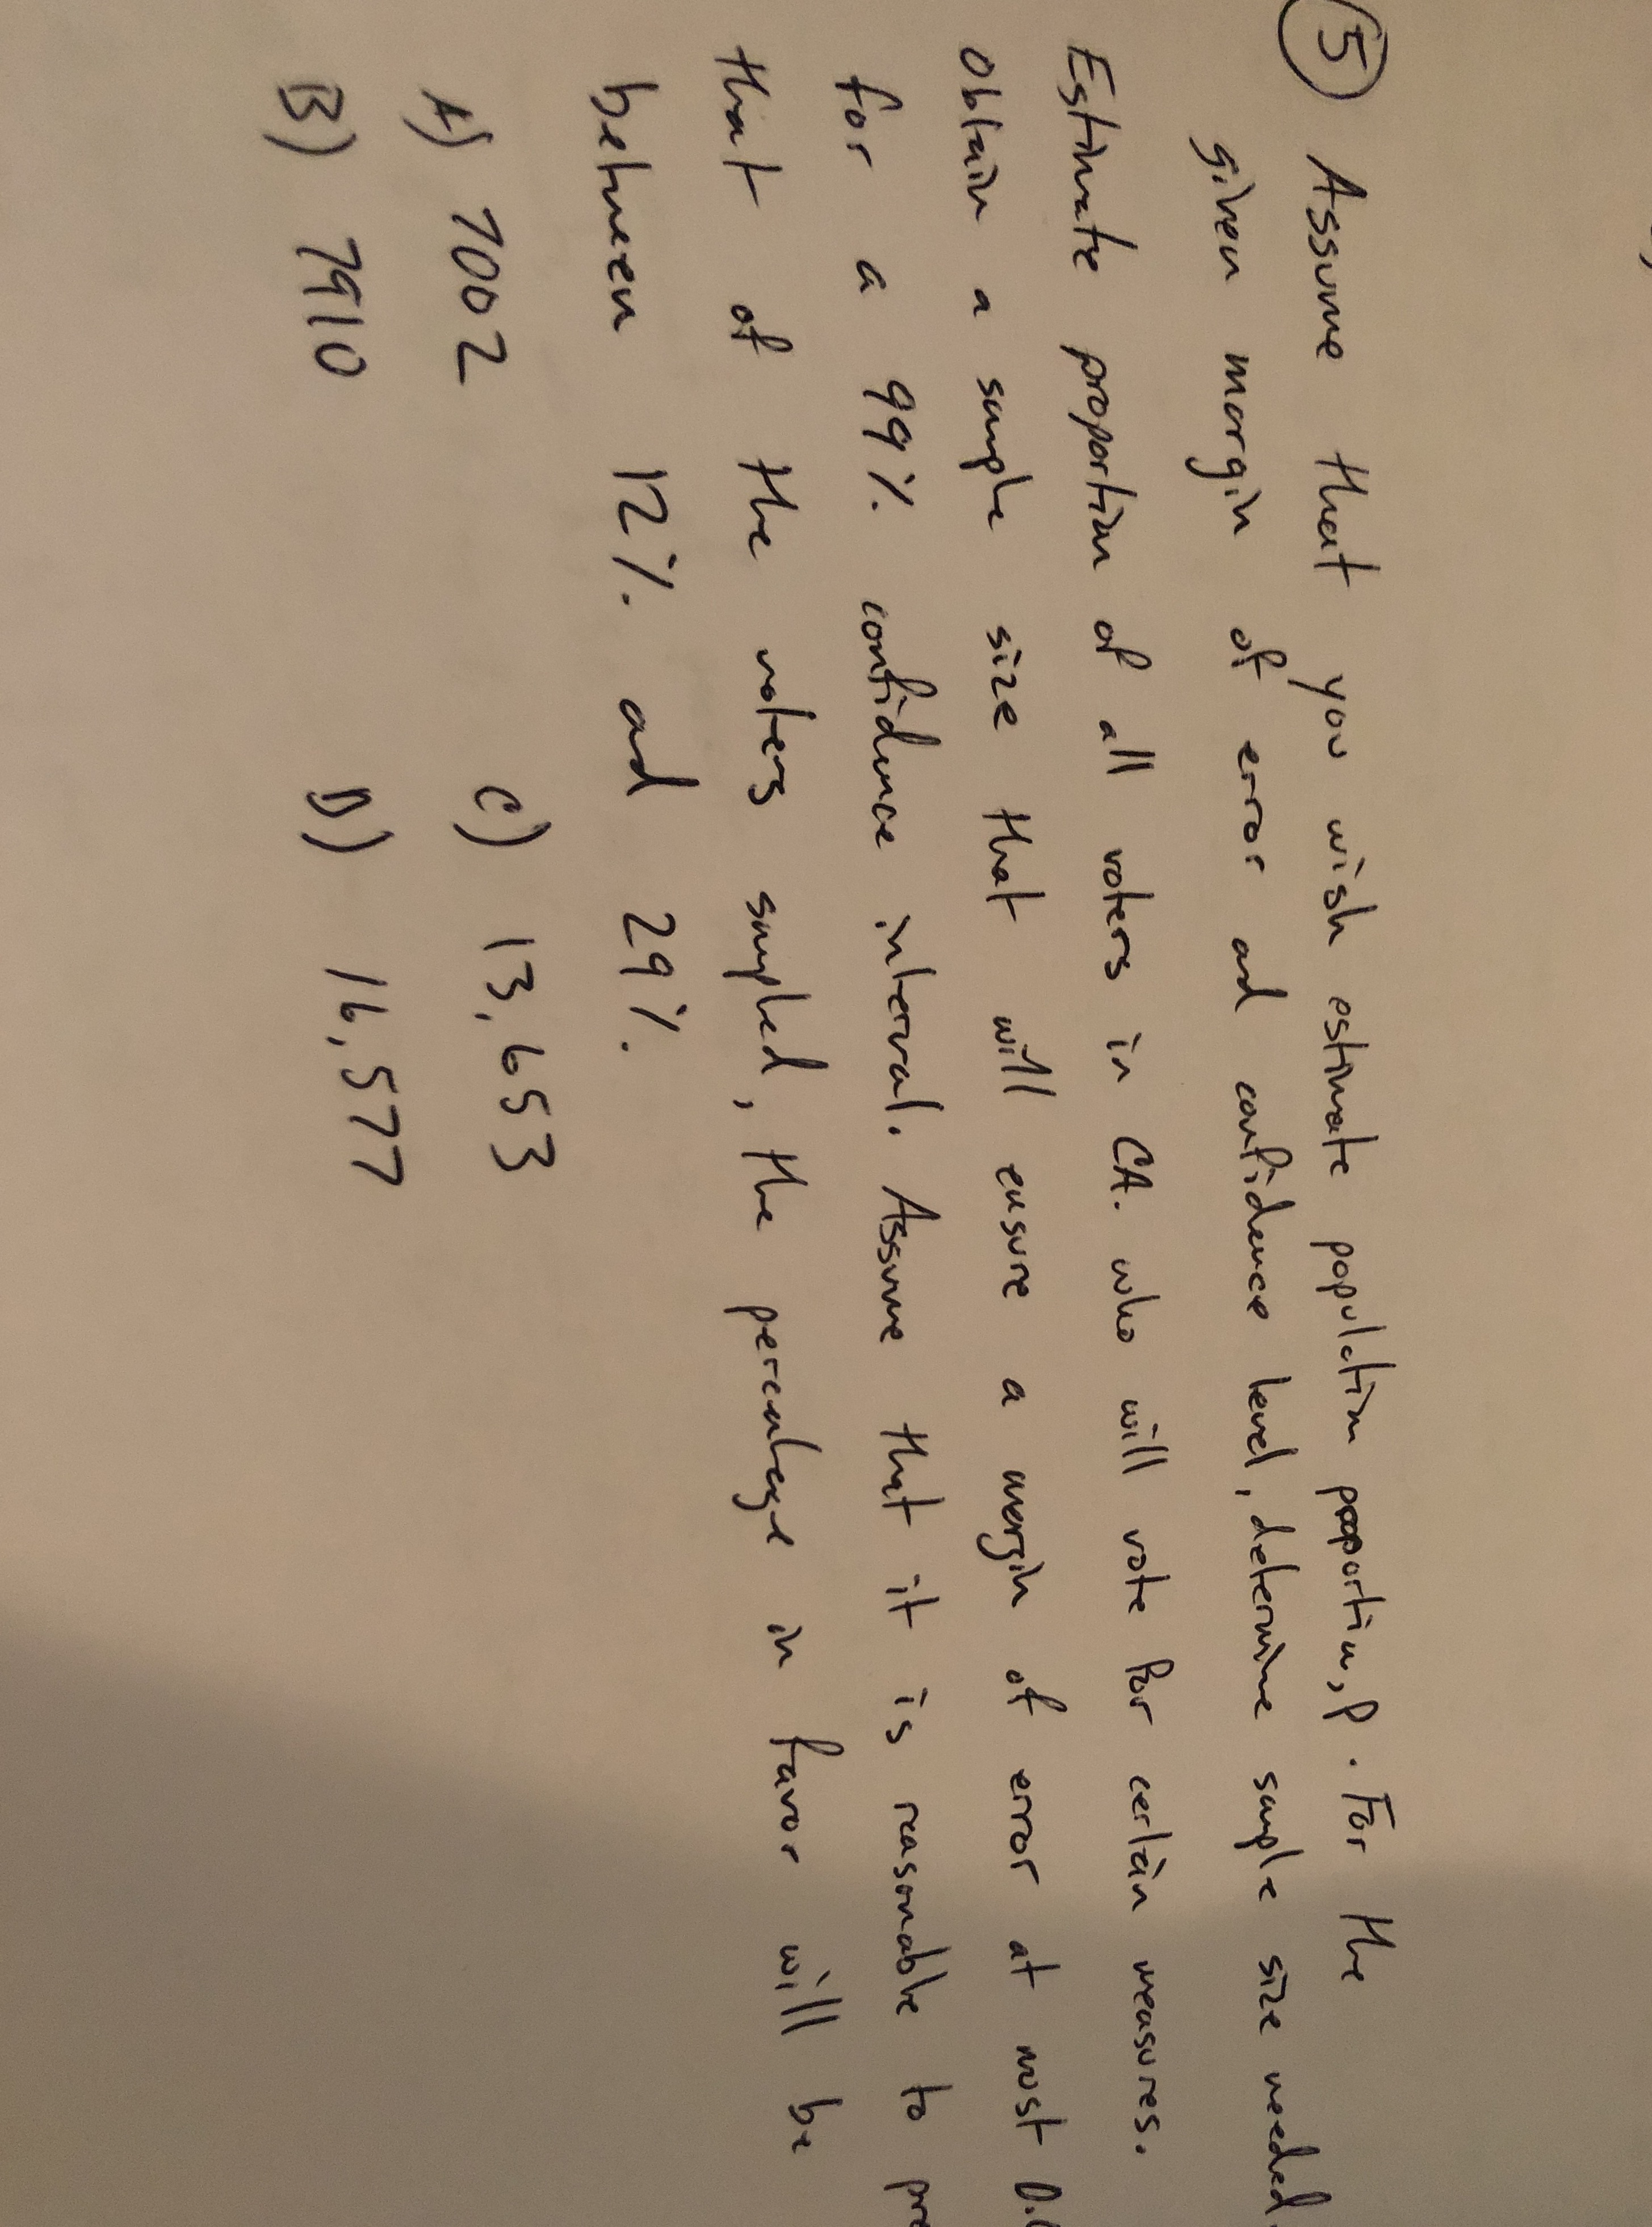 5 Assume that you wish estimate population proportion, p. For the
given margin of error ad confidence level, determine sample size needed.
Estimate proportion of all voters in CA. who will vote for certain measures.
Obtain a sample size that will ensure a margin of error at most
for a 99% confidence interval. Assume that it is reasonable to
that of the voters sampled, the percentage in favor will be
between 12% ad 29%.
A) 7002 C) 13,653
B) 7910 D) 16,577